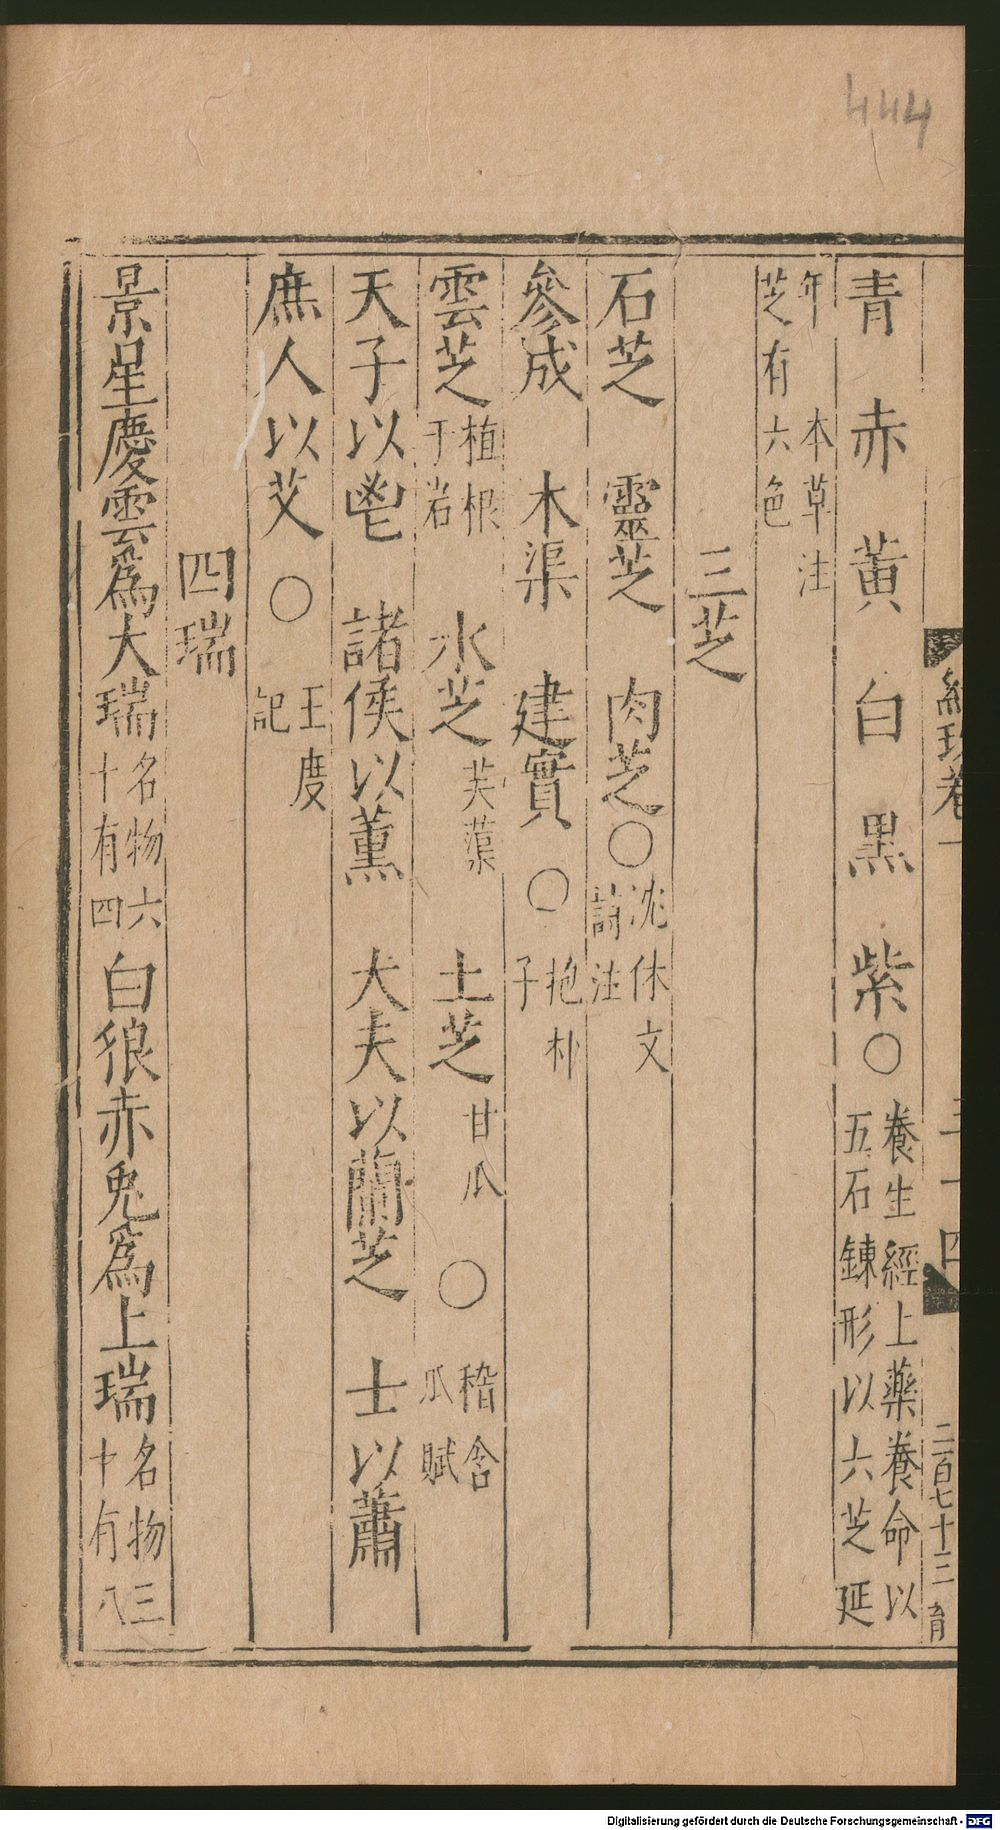 444
三十四
二百七十三 育
青 赤 黃 白 黒 紫 〇 養生經上藥養命以
五石鍊形以六芝延
年 本草注
芝有六色
三芝
石芝 靈芝 肉芝 〇 沈休文
詩注
參成 木渠 建實 〇 抱朴
子
雲芝 植根
于岩 水芝 芙蕖 土芝 甘瓜 〇 嵇含
瓜賦
天子以鬯 諸侯以薰 大夫以蘭芝 士以蕭
庶人以艾 〇 王度
記
四瑞
景星慶雲爲大瑞 名物六
十有四 白狼赤兔爲上瑞 名物三
十有八
Digitalisierung gefördert durch die Deutsche Forschungsgemeinschaft - DFG